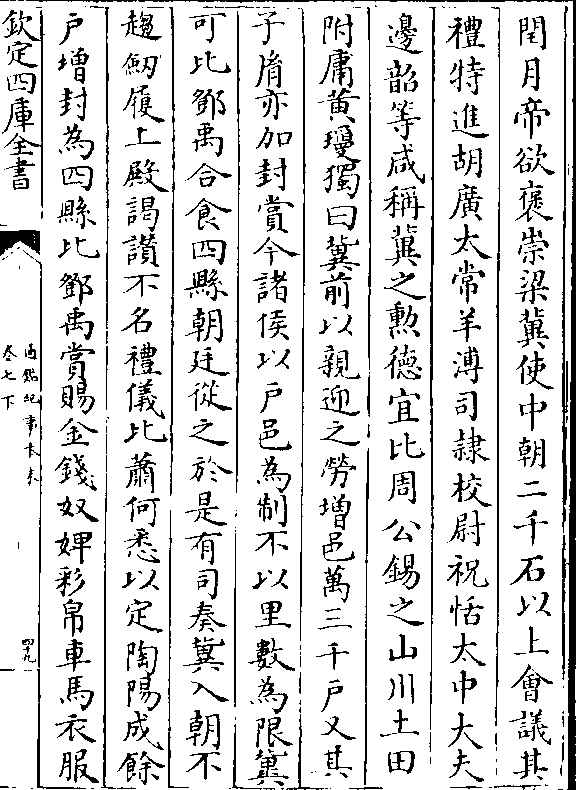 閏月帝欲褒崇梁冀使中朝二千石以上會議其
禮特進胡廣太常羊溥司隷校尉祝恬太中大夫
邊韶等咸稱冀之勲德宜比周公錫之山川土田
附庸黄瓊獨曰冀前以親迎之勞增邑萬三千户又其
子𦙍亦加封賞今諸侯以户邑為制不以里數為限冀
可比鄧禹合食四縣朝廷從之於是有司奏冀入朝不
趨劒履上殿謁讚不名禮儀比蕭何悉以定陶陽成餘
户增封為四縣比鄧禹賞賜金錢奴婢彩帛車馬衣服
欽定四庫全書
通鑑紀事本末
卷七下
四十九